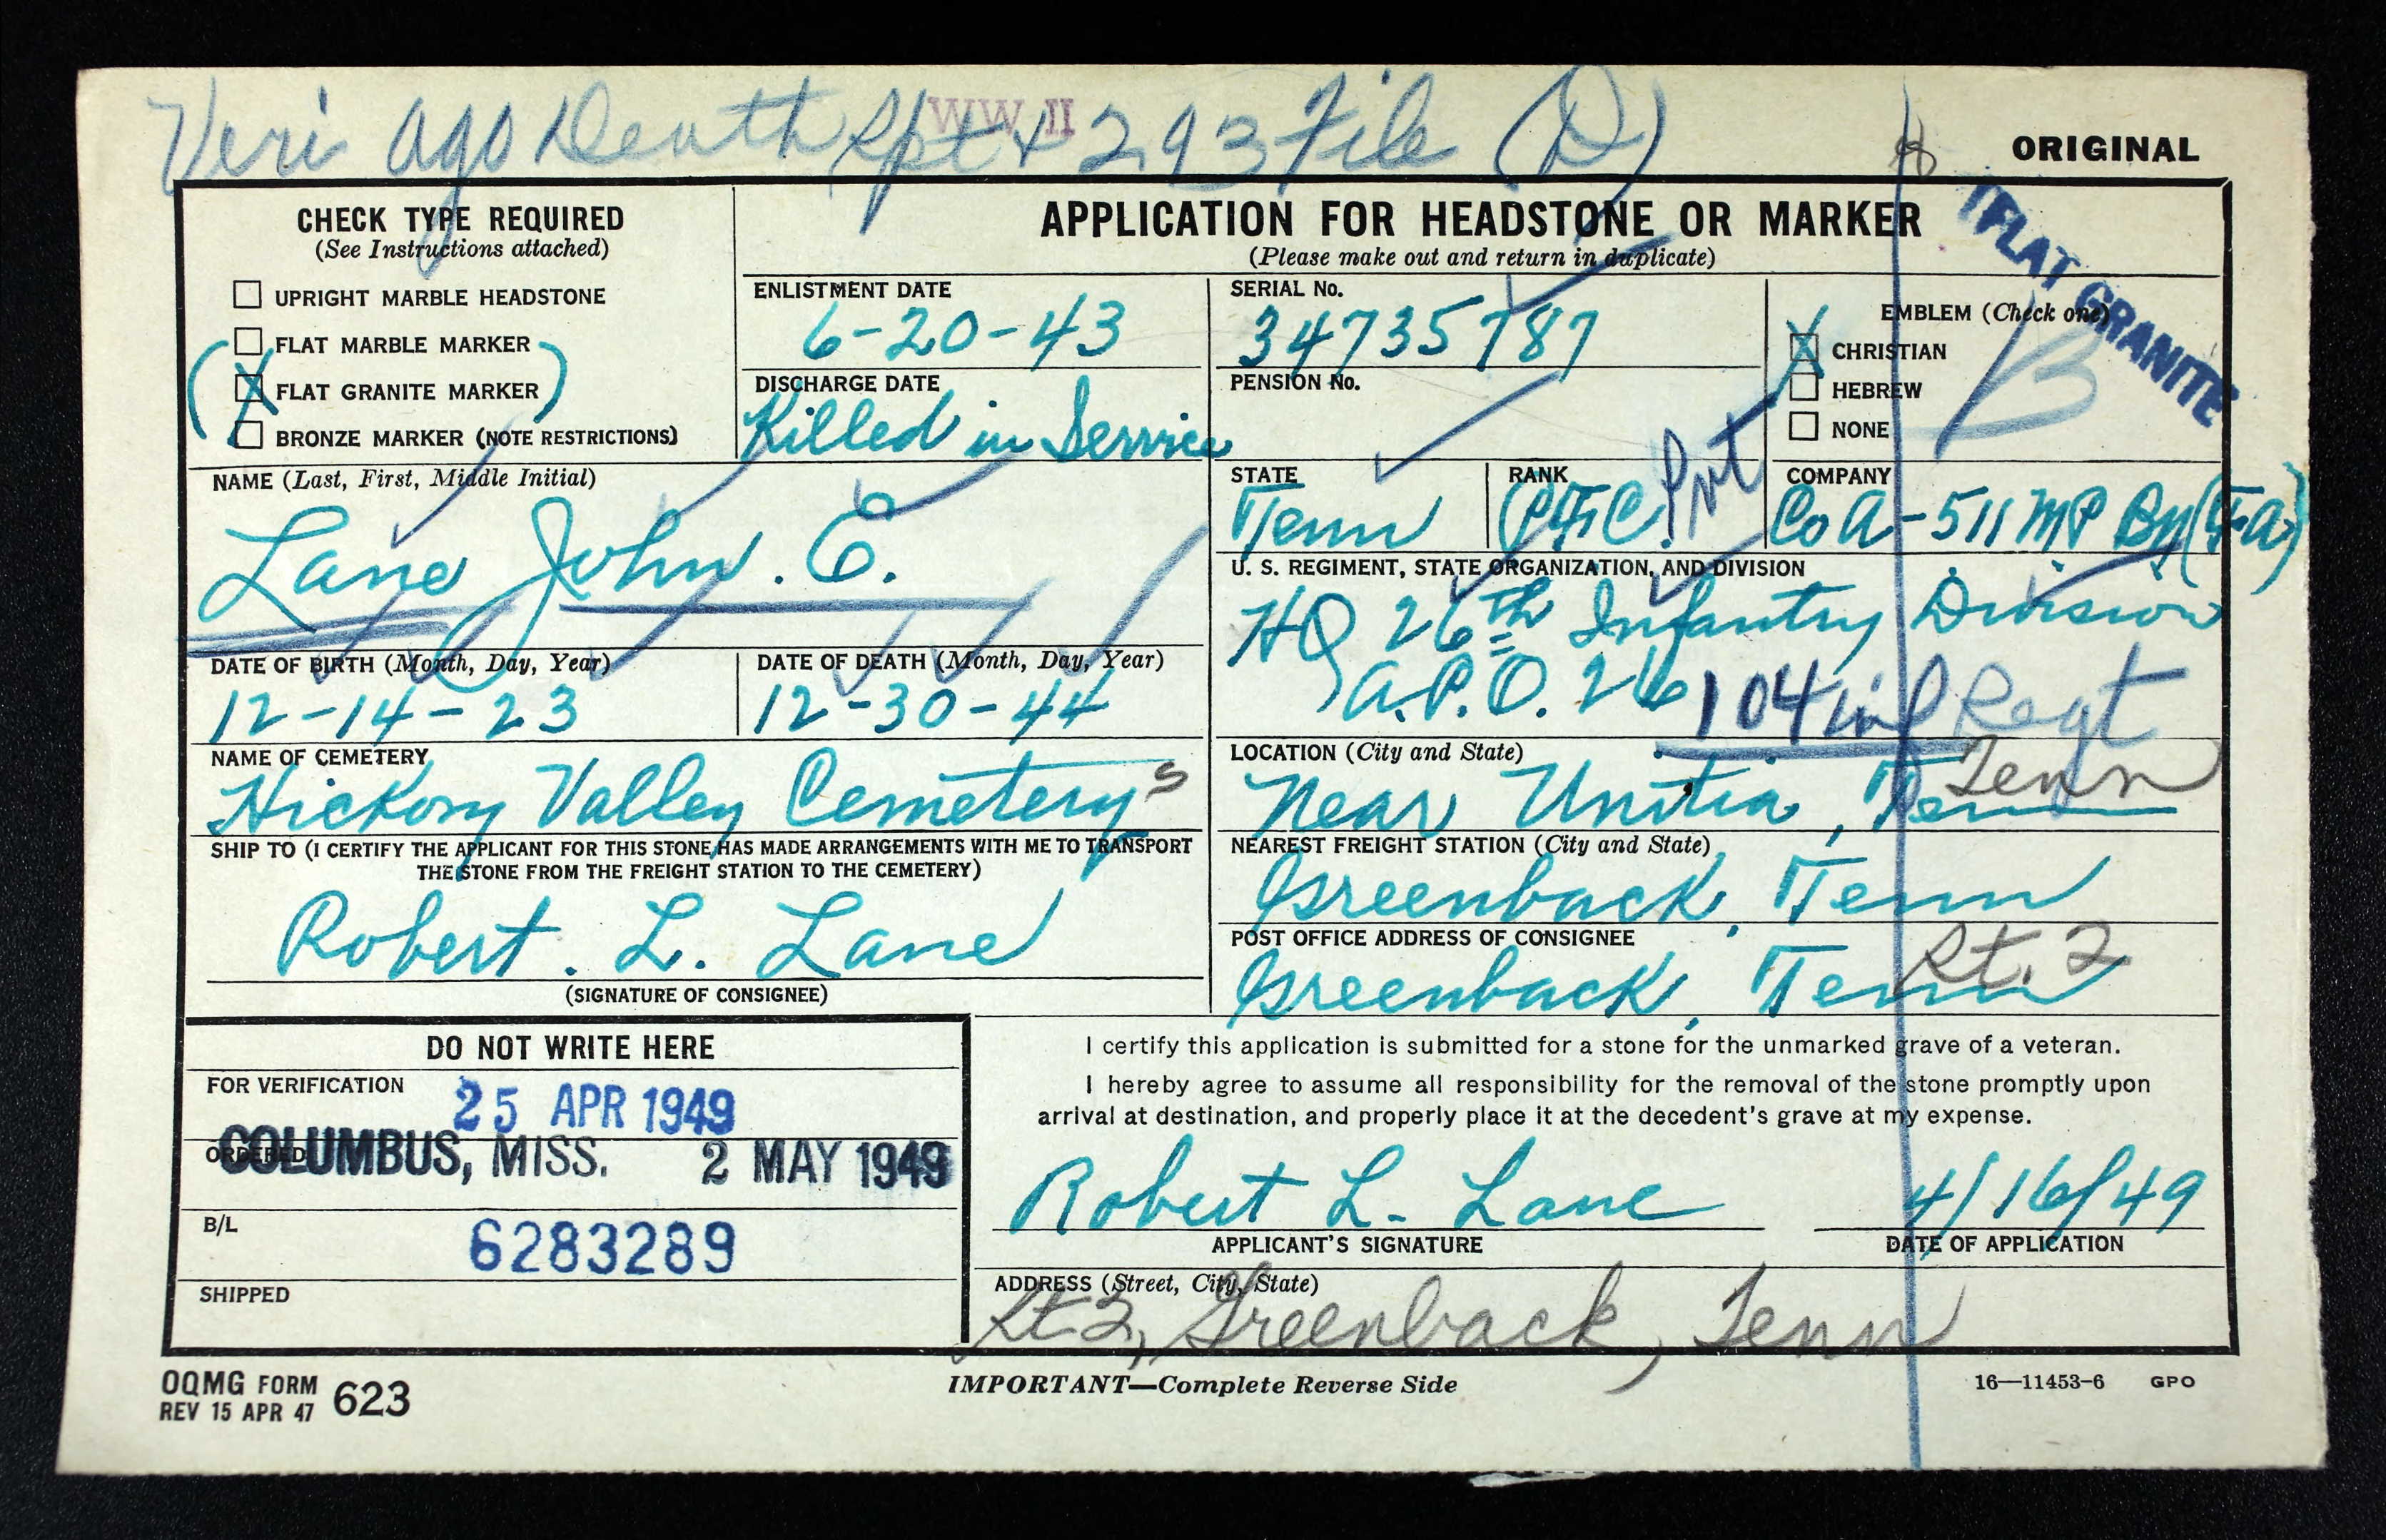 Veri Ago Death Rpt + 293 File (D)
WW II
ORIGINAL
FLAT GRANITE
CHECK TYPE REQUIRED
(See Instructions attached)
☐ UPRIGHT MARBLE HEADSTONE
☐ FLAT MARBLE MARKER
(☒ FLAT GRANITE MARKER)
☐ BRONZE MARKER (NOTE RESTRICTIONS)
APPLICATION FOR HEADSTONE OR MARKER
(Please make out and return in duplicate)
ENLISTMENT DATE
6-20-43
DISCHARGE DATE
Killed in Service
SERIAL No.
34735787
PENSION No.
EMBLEM (Check one)
☒ CHRISTIAN
☐ HEBREW
☐ NONE
B
NAME (Last, First, Middle Initial)
Lane John. E.
STATE
Tenn
RANK
(PFC. Pvt
COMPANY
Co A-511 MP Bn
U. S. REGIMENT, STATE ORGANIZATION, AND DIVISION
HQ 26th Infantry Division
A.P.O. 26 104 inf Regt
DATE OF BIRTH (Month, Day, Year)
12-14-23
DATE OF DEATH (Month, Day, Year)
12-30-44
NAME OF CEMETERY
Hickory Valley Cemetery s
LOCATION (City and State)
Near Unitia, Tenn Tenn
SHIP TO (I CERTIFY THE APPLICANT FOR THIS STONE HAS MADE ARRANGEMENTS WITH ME TO TRANSPORT
THE STONE FROM THE FREIGHT STATION TO THE CEMETERY)
Robert. L. Lane
(SIGNATURE OF CONSIGNEE)
NEAREST FREIGHT STATION (City and State)
Greenback, Tenn
POST OFFICE ADDRESS OF CONSIGNEE
Greenback, Tenn Rt. 2
DO NOT WRITE HERE
FOR VERIFICATION
25 APR 1949
ORDERED
COLUMBUS, MISS. 2 MAY 1949
B/L
6283289
SHIPPED
I certify this application is submitted for a stone for the unmarked grave of a veteran.
I hereby agree to assume all responsibility for the removal of the stone promptly upon
arrival at destination, and properly place it at the decedent's grave at my expense.
Robert L. Lane 4/16/49
APPLICANT'S SIGNATURE DATE OF APPLICATION
ADDRESS (Street, City, State)
Rt 2, Greenback, Tenn
OQMG FORM 623
REV 15 APR 47
IMPORTANT—Complete Reverse Side
16—11453-6 GPO